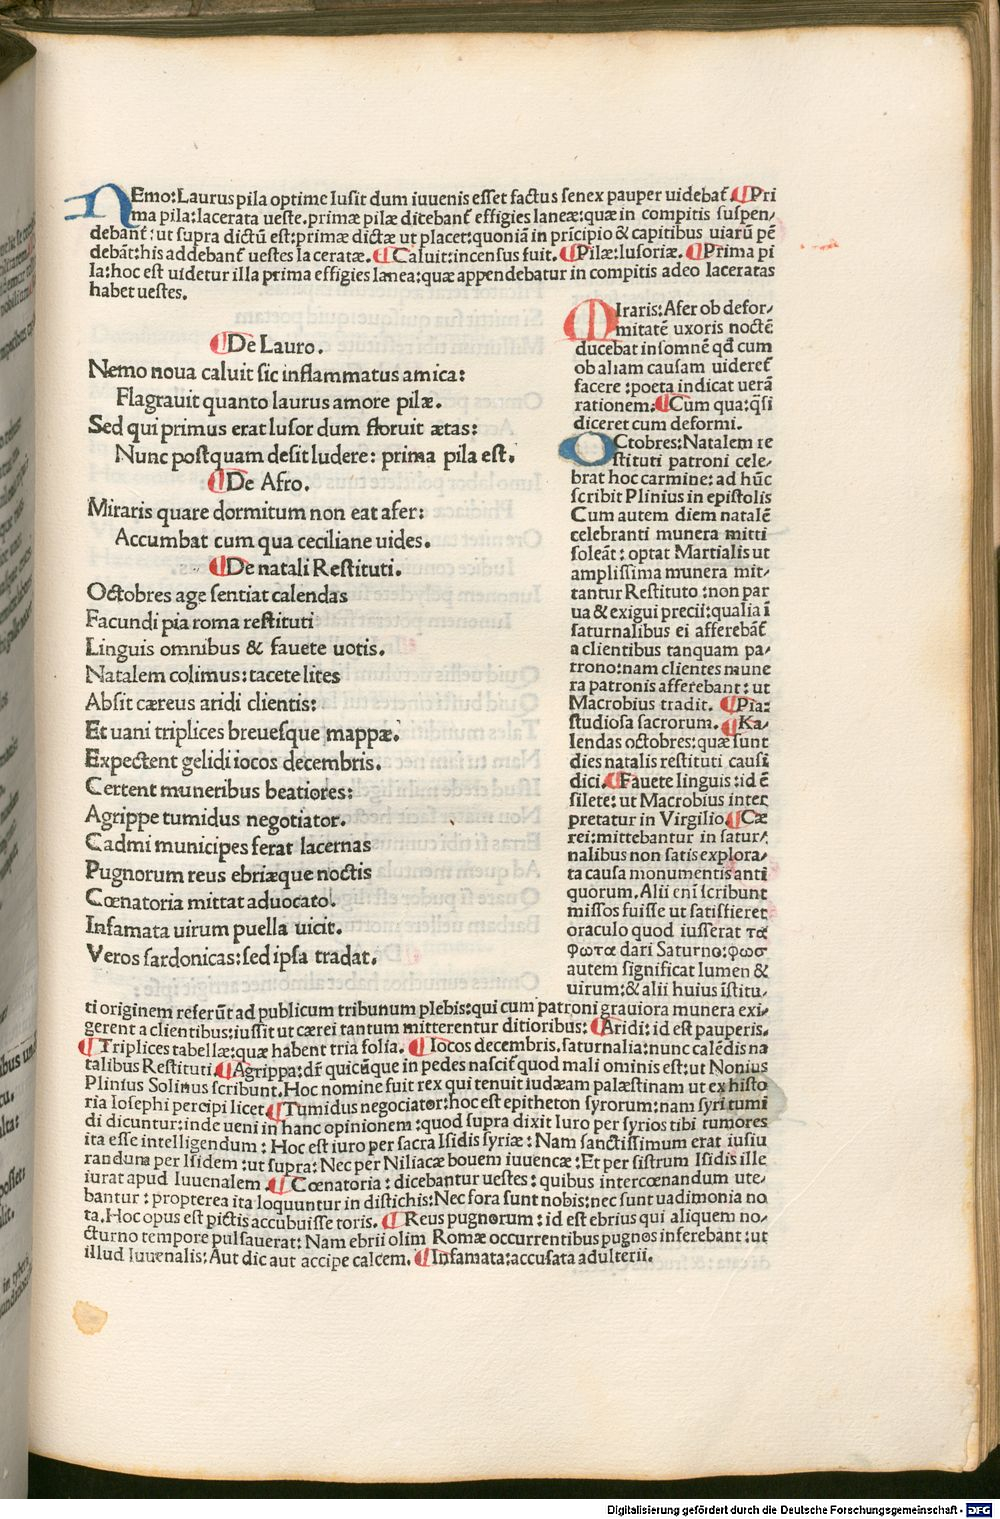 NEmo: Laurus pila optime lusit dum iuuenis esset factus senex pauper uidebat᷑. ¶ Pri
ma pila: lacerata ueste. primæ pilæ dicebant᷑ effigies laneæ: quæ in compitis suspen-
debant᷑: ut supra dictū est: primæ dictæ ut placet: quoniā in prīcipio & capitibus uiarū pē
debāt: his ad debant᷑ uestes laceratæ. ¶ Caluit: incensus fuit. ¶ Pilæ: lusoriæ. ¶ Prima pi
la: hoc est uidetur illa prima effigies lanea: quæ appendebatur in compitis adeo laceratas
habet uestes.
¶ De Lauro.
Nemo noua caluit sic inflammatus amica:
Flagrauit quanto laurus amore pilæ.
Sed qui primus erat lusor dum floruit ætas:
Nunc postquam desit ludere: prima pila est.
¶ De Afro.
Miraris quare dormitum non eat afer:
Accumbat cum qua ceciliane uides.
¶ De natali Restituti.
Octobres age sentiat calendas
Facundi pia roma restituti
Linguis omnibus & fauete uotis.
Natalem colimus: tacete lites
Absit cæreus aridi clientis:
Et uani triplices breuesque mappæ.
Expectent gelidi iocos decembris.
Certent muneribus beatiores:
Agrippe tumidus negotiator.
Cadmi municipes ferat lacernas
Pugnorum reus ebriæque noctis
Cœnatoria mittat aduocato.
Infamata uirum puella uicit.
Veros sardonicas: sed ipsa tradat.
MIraris: Afer ob defor-
mitatē uxoris noctē
ducebat insomnē qd̄ cum
ob aliam causam uideret᷑
facere: poeta indicat uerā
rationem: ¶ Cum qua: q̄si
diceret cum deformi.
OCtobres: Natalem re
stituti patroni cele-
brat hoc carmine: ad hūc
scribit Plinius in epistolis
Cum autem diem natalē
celebranti munera mitti
soleāt: optat Martialis ut
amplissima munera mit-
tantur Restituto: non par
ua & exigui precii: qualia ī
saturnalibus ei afferebāt᷑
a clientibus tanquam pa-
trono: nam clientes mune
ra patronis afferebant: ut
Macrobius tradit. ¶ Pia:
studiosa sacrorum. ¶ Ka-
lendas octobres: quæ sunt
dies natalis restituti causi
dici. ¶ Fauete linguis: id ē
silete: ut Macrobius inter
pretatur in Virgilio. ¶ Cæ
rei: mittebantur in satur-
nalibus non satis explora-
ta causa monumentis anti
quorum. Alii eni᷑ scribunt
missos fuisse ut satisfieret
oraculo quod iusserat τα
φωτα dari Saturno: φωσ
autem significat lumen &
uirum: & alii huius īstitu-
ti originem referūt ad publicum tribunum plebis: qui cum patroni grauiora munera exi-
gerent a clientibus: iussit ut cærei tantum mitterentur ditioribus: ¶ Aridi: id est pauperis.
¶ Triplices tabellæ: quæ habent tria folia. ¶ Iocos decembris. saturnalia: nunc calēdis na
talibus Restituti. ¶ Agrippa: dr̄ quicūque in pedes nascit᷑ quod mali ominis est: ut Nonius
Plinius Solinus scribunt. Hoc nomine fuit rex qui tenuit iudæam palæstinam ut ex histo
ria Iosephi percipi licet. ¶ Tumidus negociator: hoc est epitheton syrorum: nam syri tumi
di dicuntur: inde ueni in hanc opinionem: quod supra dixit Iuro per syrios tibi tumores
ita esse intelligendum: Hoc est iuro per sacra Isidis syriæ: Nam sanctissimum erat iusiu
randum per Isidem: ut supra: Nec per Niliacæ bouem iuuencæ: Et per sistrum Isidis ille
iurat apud Iuuenalem. ¶ Cœnatoria: dicebantur uestes: quibus intercœnandum ute-
bantur: propterea ita loquuntur in distichis: Nec fora sunt nobis: nec sunt uadimonia no
ta. Hoc opus est pictis accubuisse toris. ¶ Reus pugnorum: id est ebrius qui aliquem no-
cturno tempore pulsauerat: Nam ebrii olim Romæ occurrentibus pugnos inferebant: ut
illud Iuuenalis: Aut dic aut accipe calcem. ¶ Infamata: accusata adulterii.
Digitalisierung gefördert durch die Deutsche Forschungsgemeinschaft - DFG